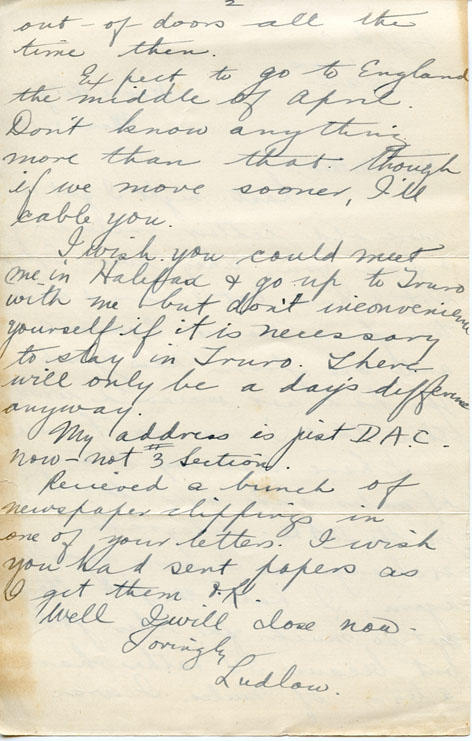 2
out-of doors all the
time then.
Expect to go to England
the middle of April.
Don't know anything
more than that though
if we move sooner, I'll
cable you.
I wish you could meet
me in Halifax & go up to Truro
with me but don't inconvenience
yourself if it is necessary
to stay in Truro. There
will only be a days difference
anyway.
My address is just D.A.C.
now - not #3 Section.
Recieved a bunch of
newspaper clippings in
one of your letters. I wish
you had sent papers as
I get them O.K.
Well I will close now.
Lovingly
Ludlow.